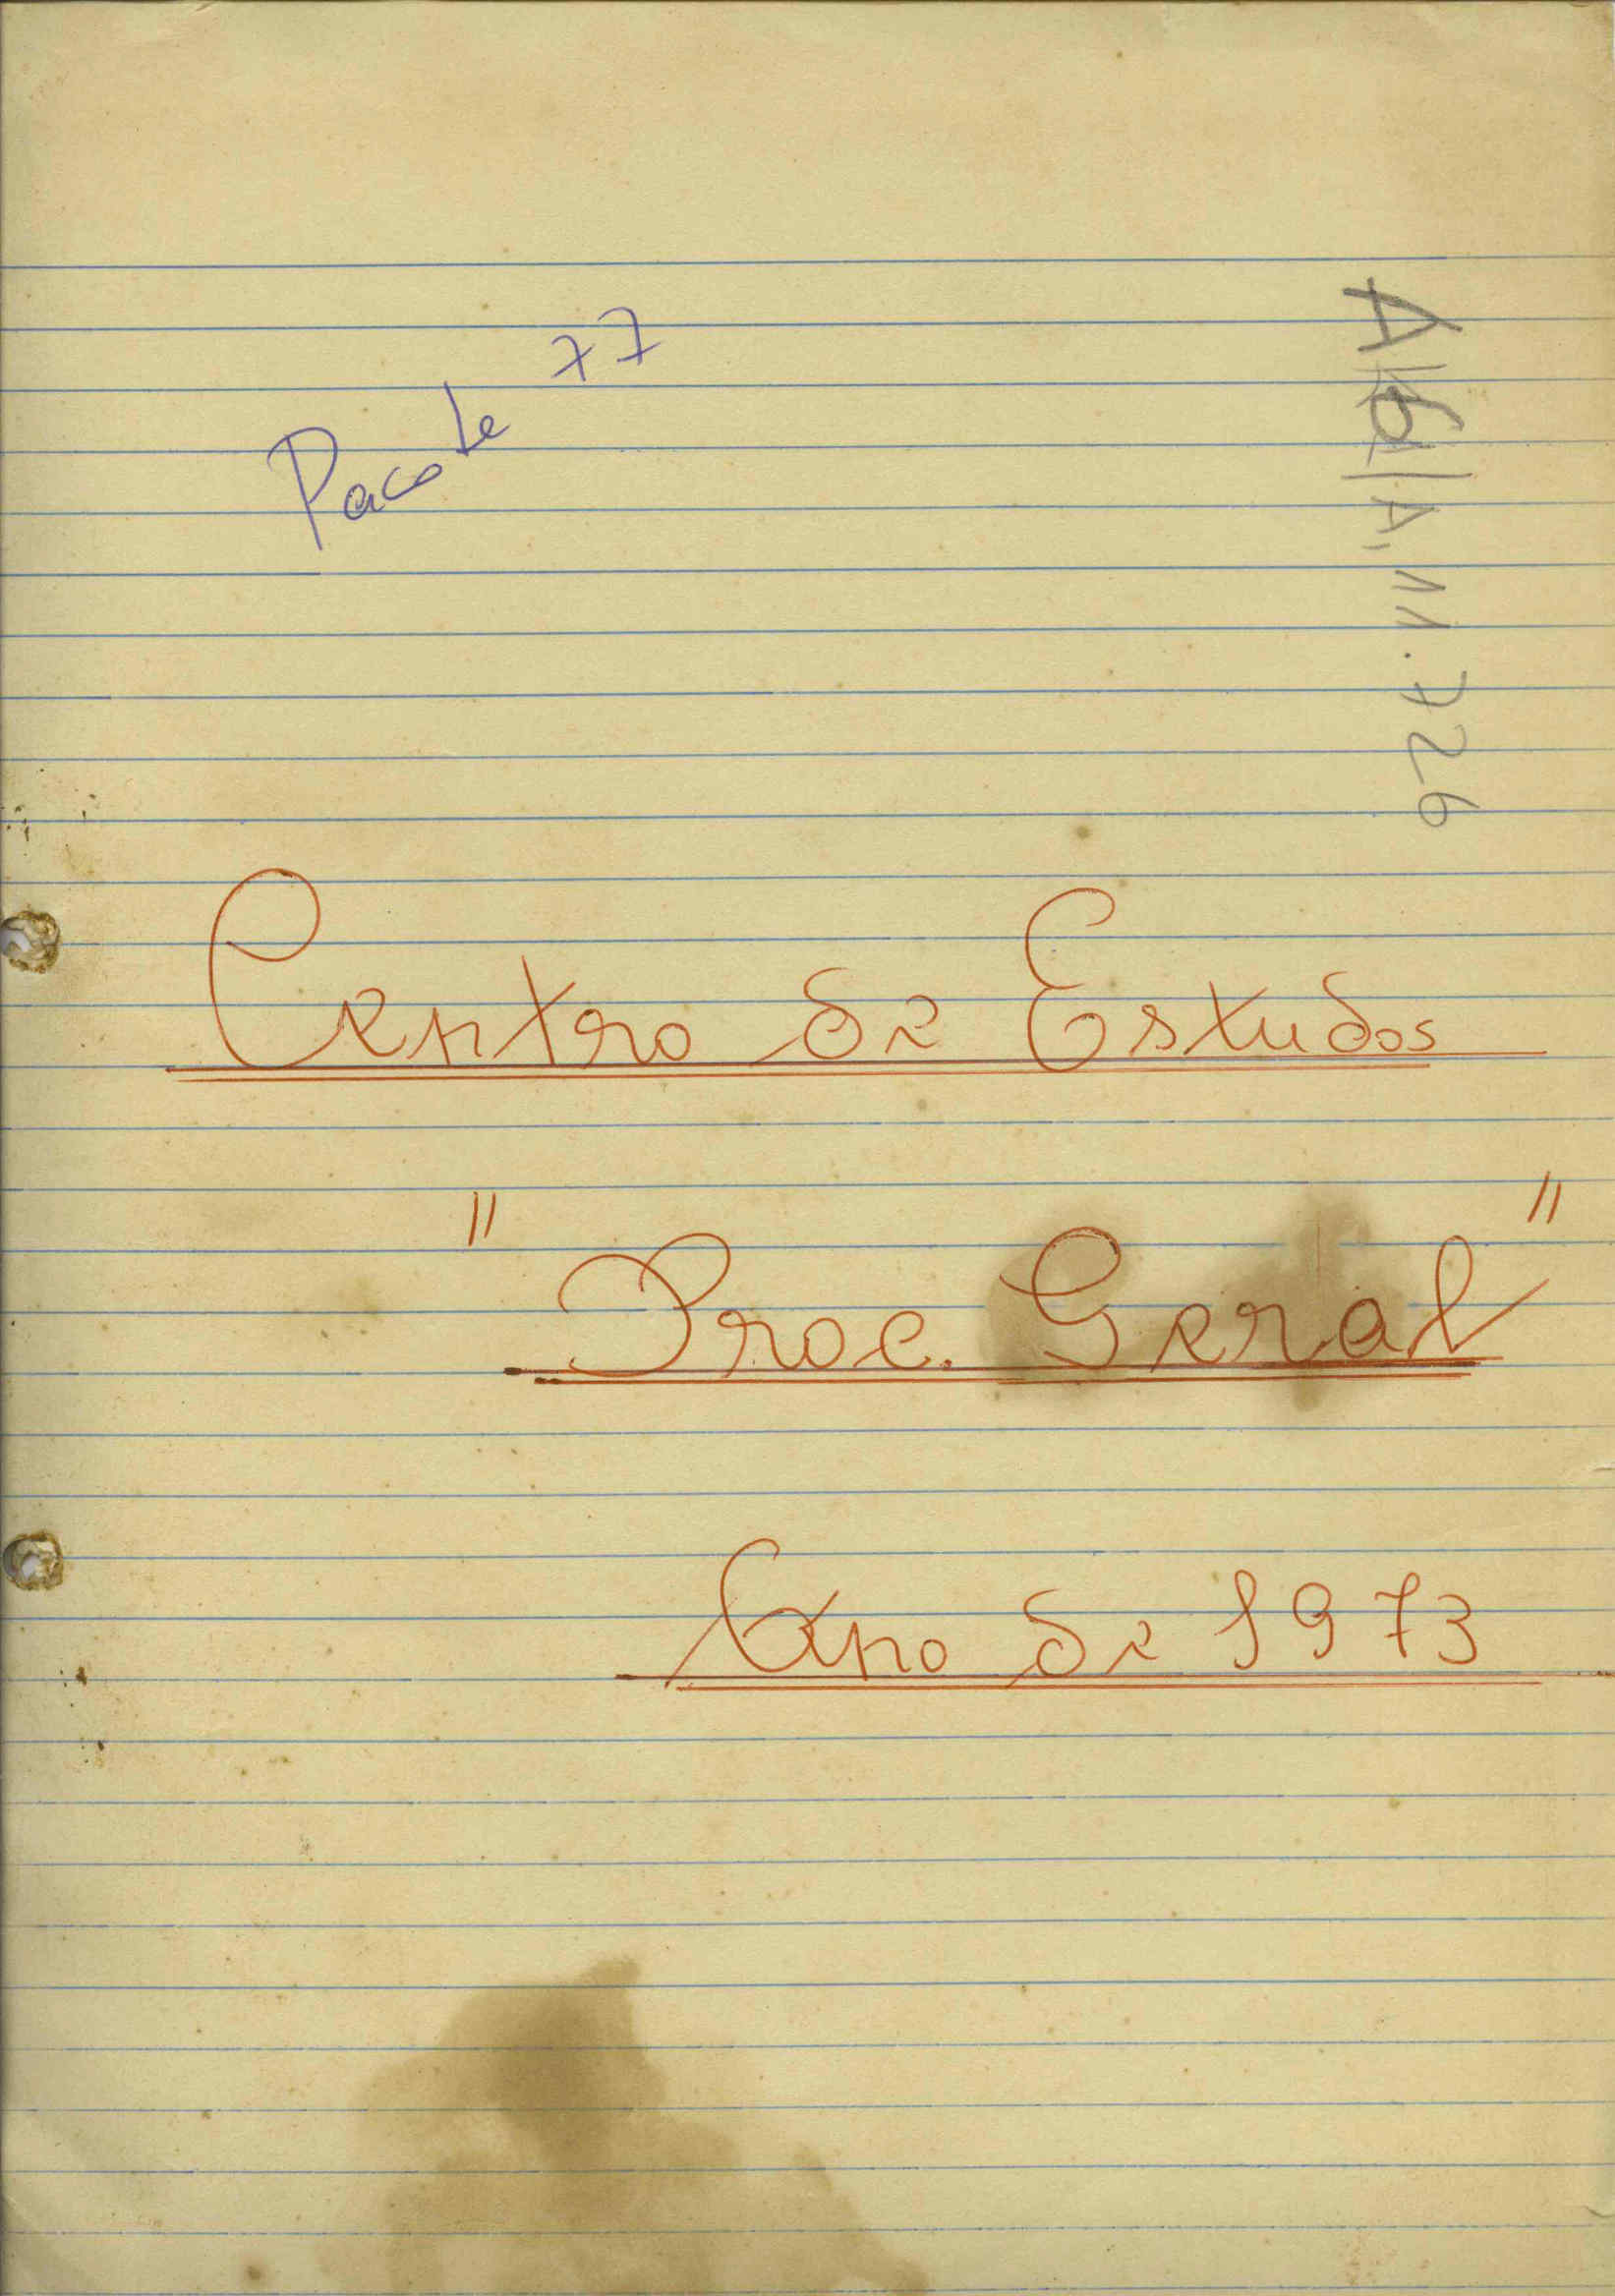 Pacote 77
A, 11.726
Centro de Estudos
"Proc. Geral"
Ano de 1973